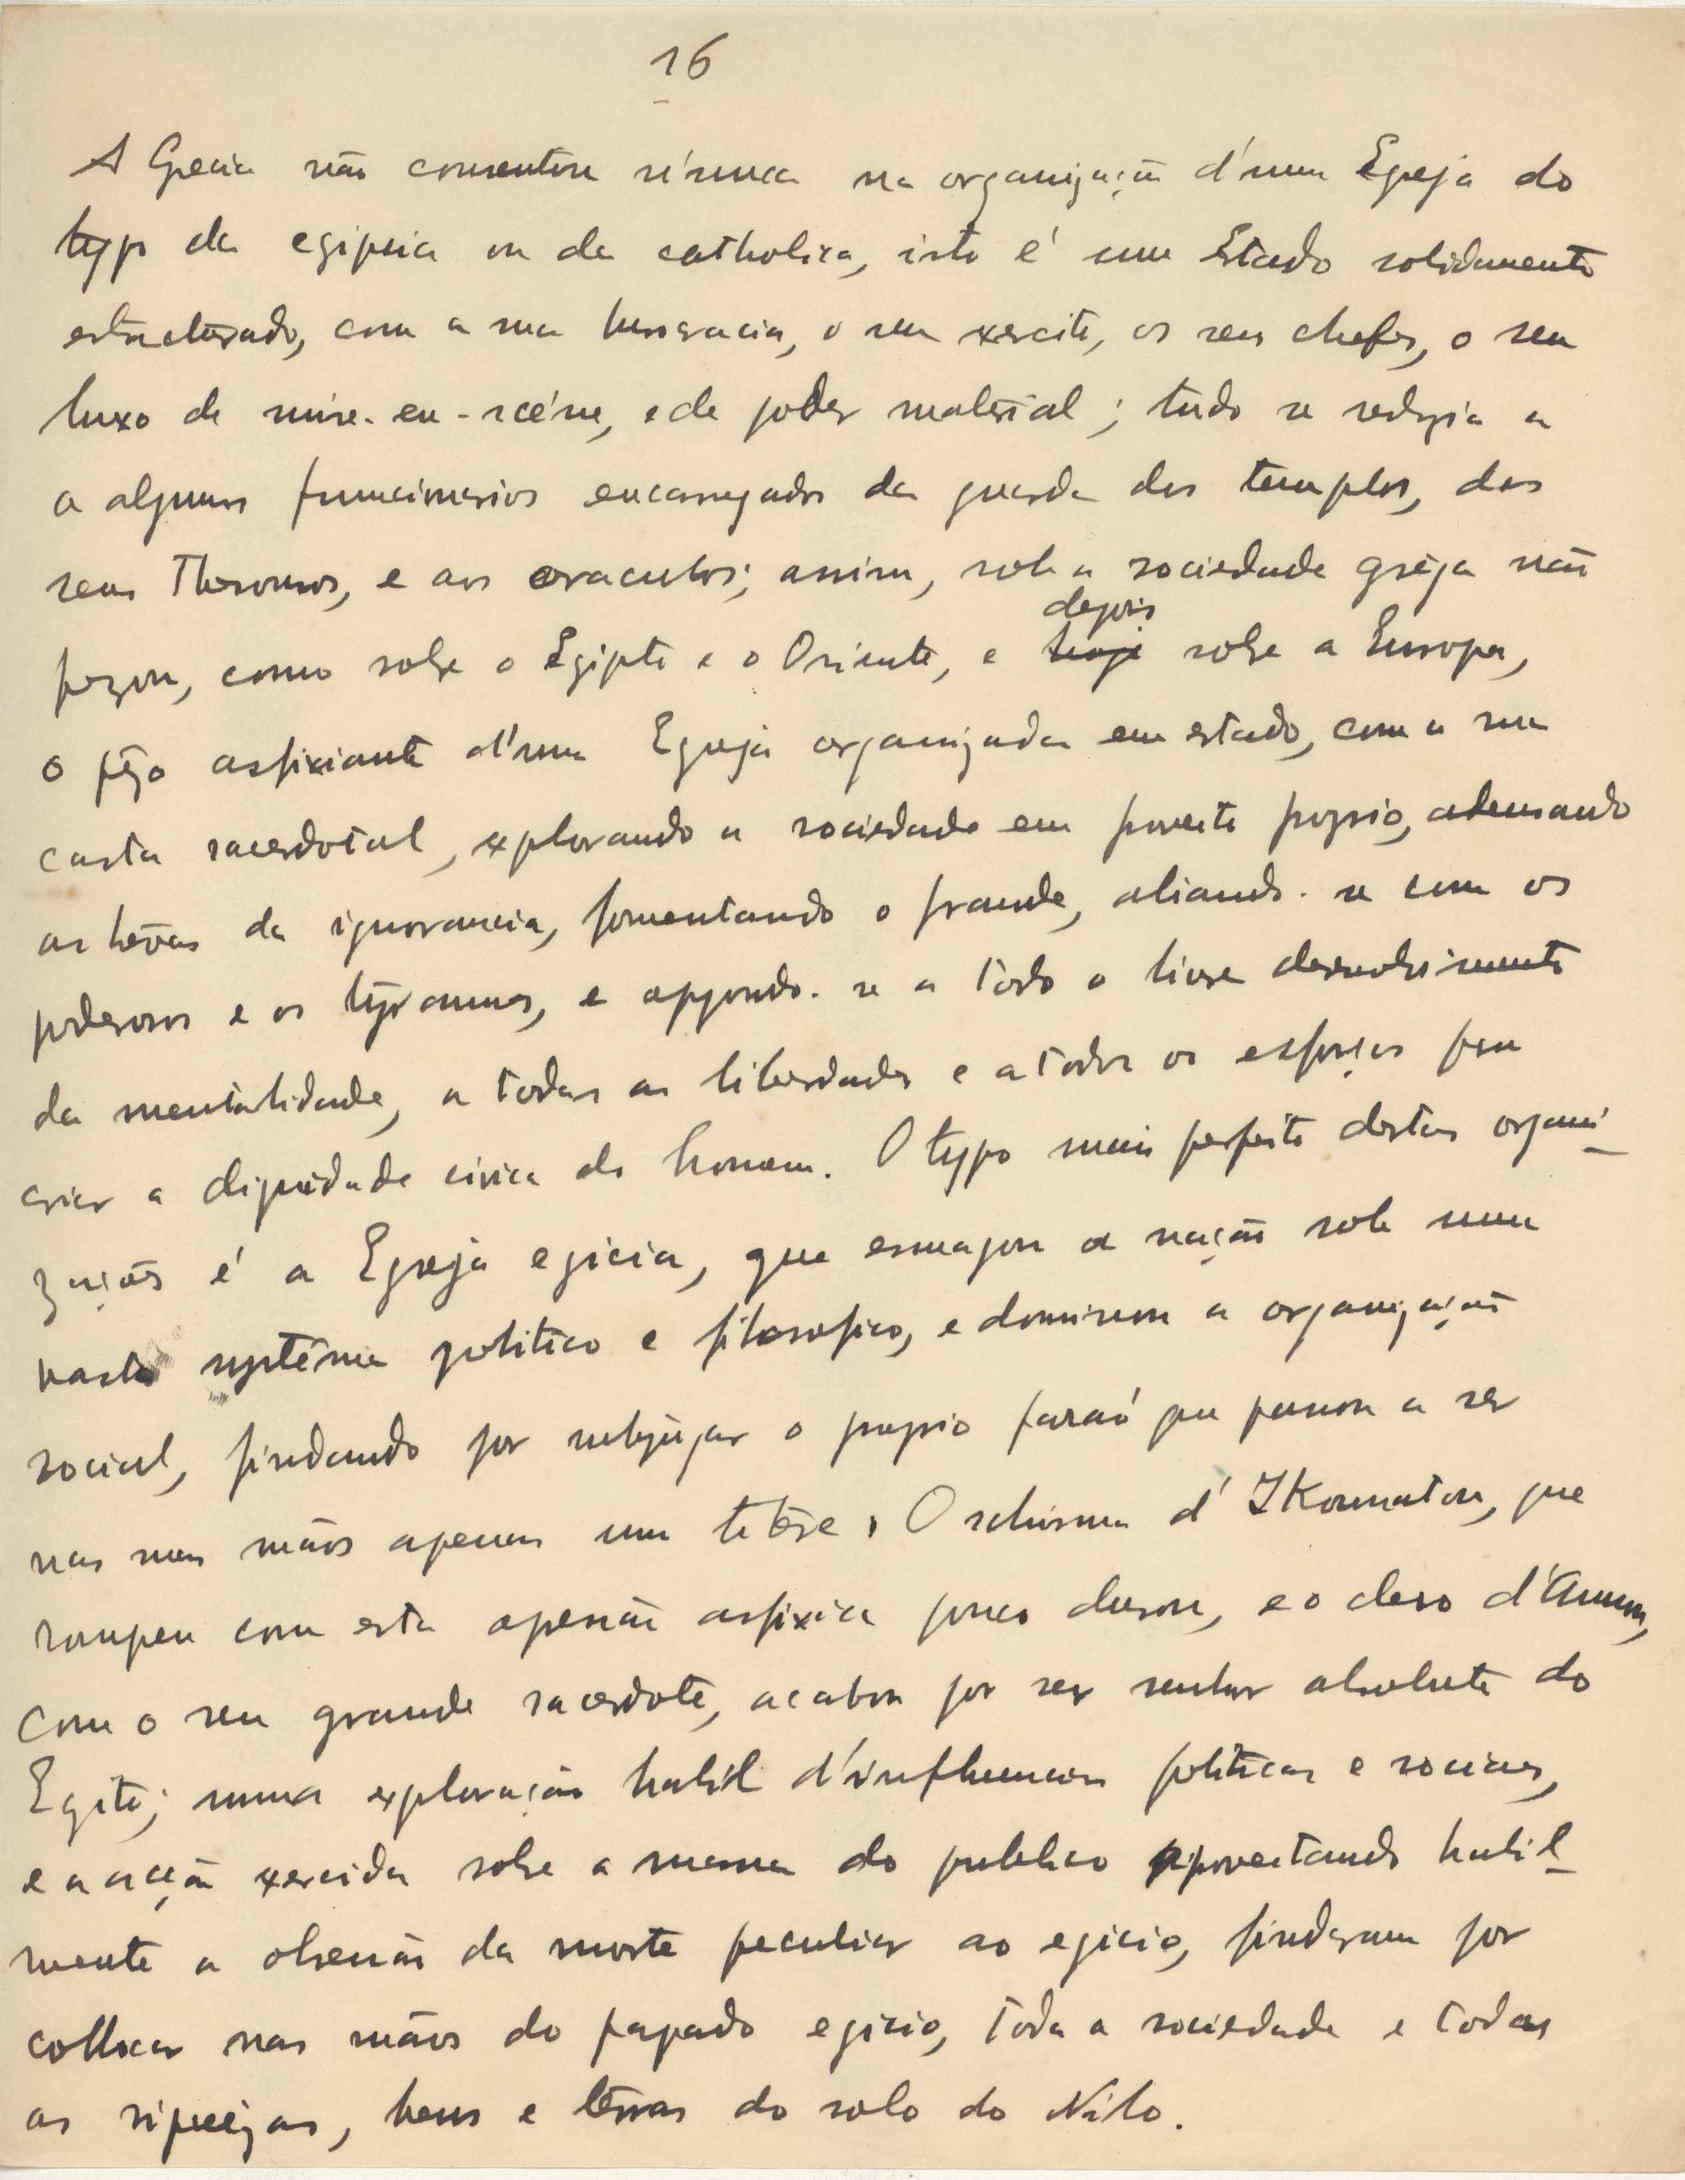 16
A Grecia não consentiu nunca na organização d'uma Egreja do
typo da egipcia ou da catholica, isto é um Estado solidamente
estructurado, com a sua burocracia, o seu exercito, os seus chefes, o seu
luxo de mise-en-scéne, e de poder material; tudo se reduzia a
a alguns funcionarios encarregados da guarda dos templos, dos
seus Thesouros, e aos oraculos; assim, sob a sociedade grega não
pezou, como sobre o Egipto e o Oriente, e hoje depois sobre a Europa,
o pêzo asfixiante d'uma Egreja organizada em estado, com a sua
casta sacerdotal, explorando a sociedade em proveito proprio, adensando
as trévas da ignorancia, fomentando o fraude, aliando-se com os
poderosos e os tyrannos, e oppondo-se a todo o livre desenvolvimento
da mentalidade, a todas as liberdades e a todos os esforços para
criar a dignidade civica do homem. O typo mais perfeito destas organi-
zações é a Egreja egicia, que esmagou a nação sob um
vasto systêma politico e filosofico, e dominou a organização
social, findando por subjugar o proprio faraó que passou a ser
nas suas mãos apenas um titére. O schisma d'IKounaton, que
rompeu com esta opressão asfixia pouco durou, e o clero d'Amon,
com o seu grande sacerdote, acabou por ser senhor absoluto do
Egito; numa exploração habil d'influencias politicas e sociaes,
e a acção exercida sobre a massa do publico aproveitando habil-
mente a obsessão da morte peculiar ao egicio, findaram por
collocar nas mãos do papado egicio, toda a sociedade e todas
as riquezas, bens e térras do solo do Nilo.